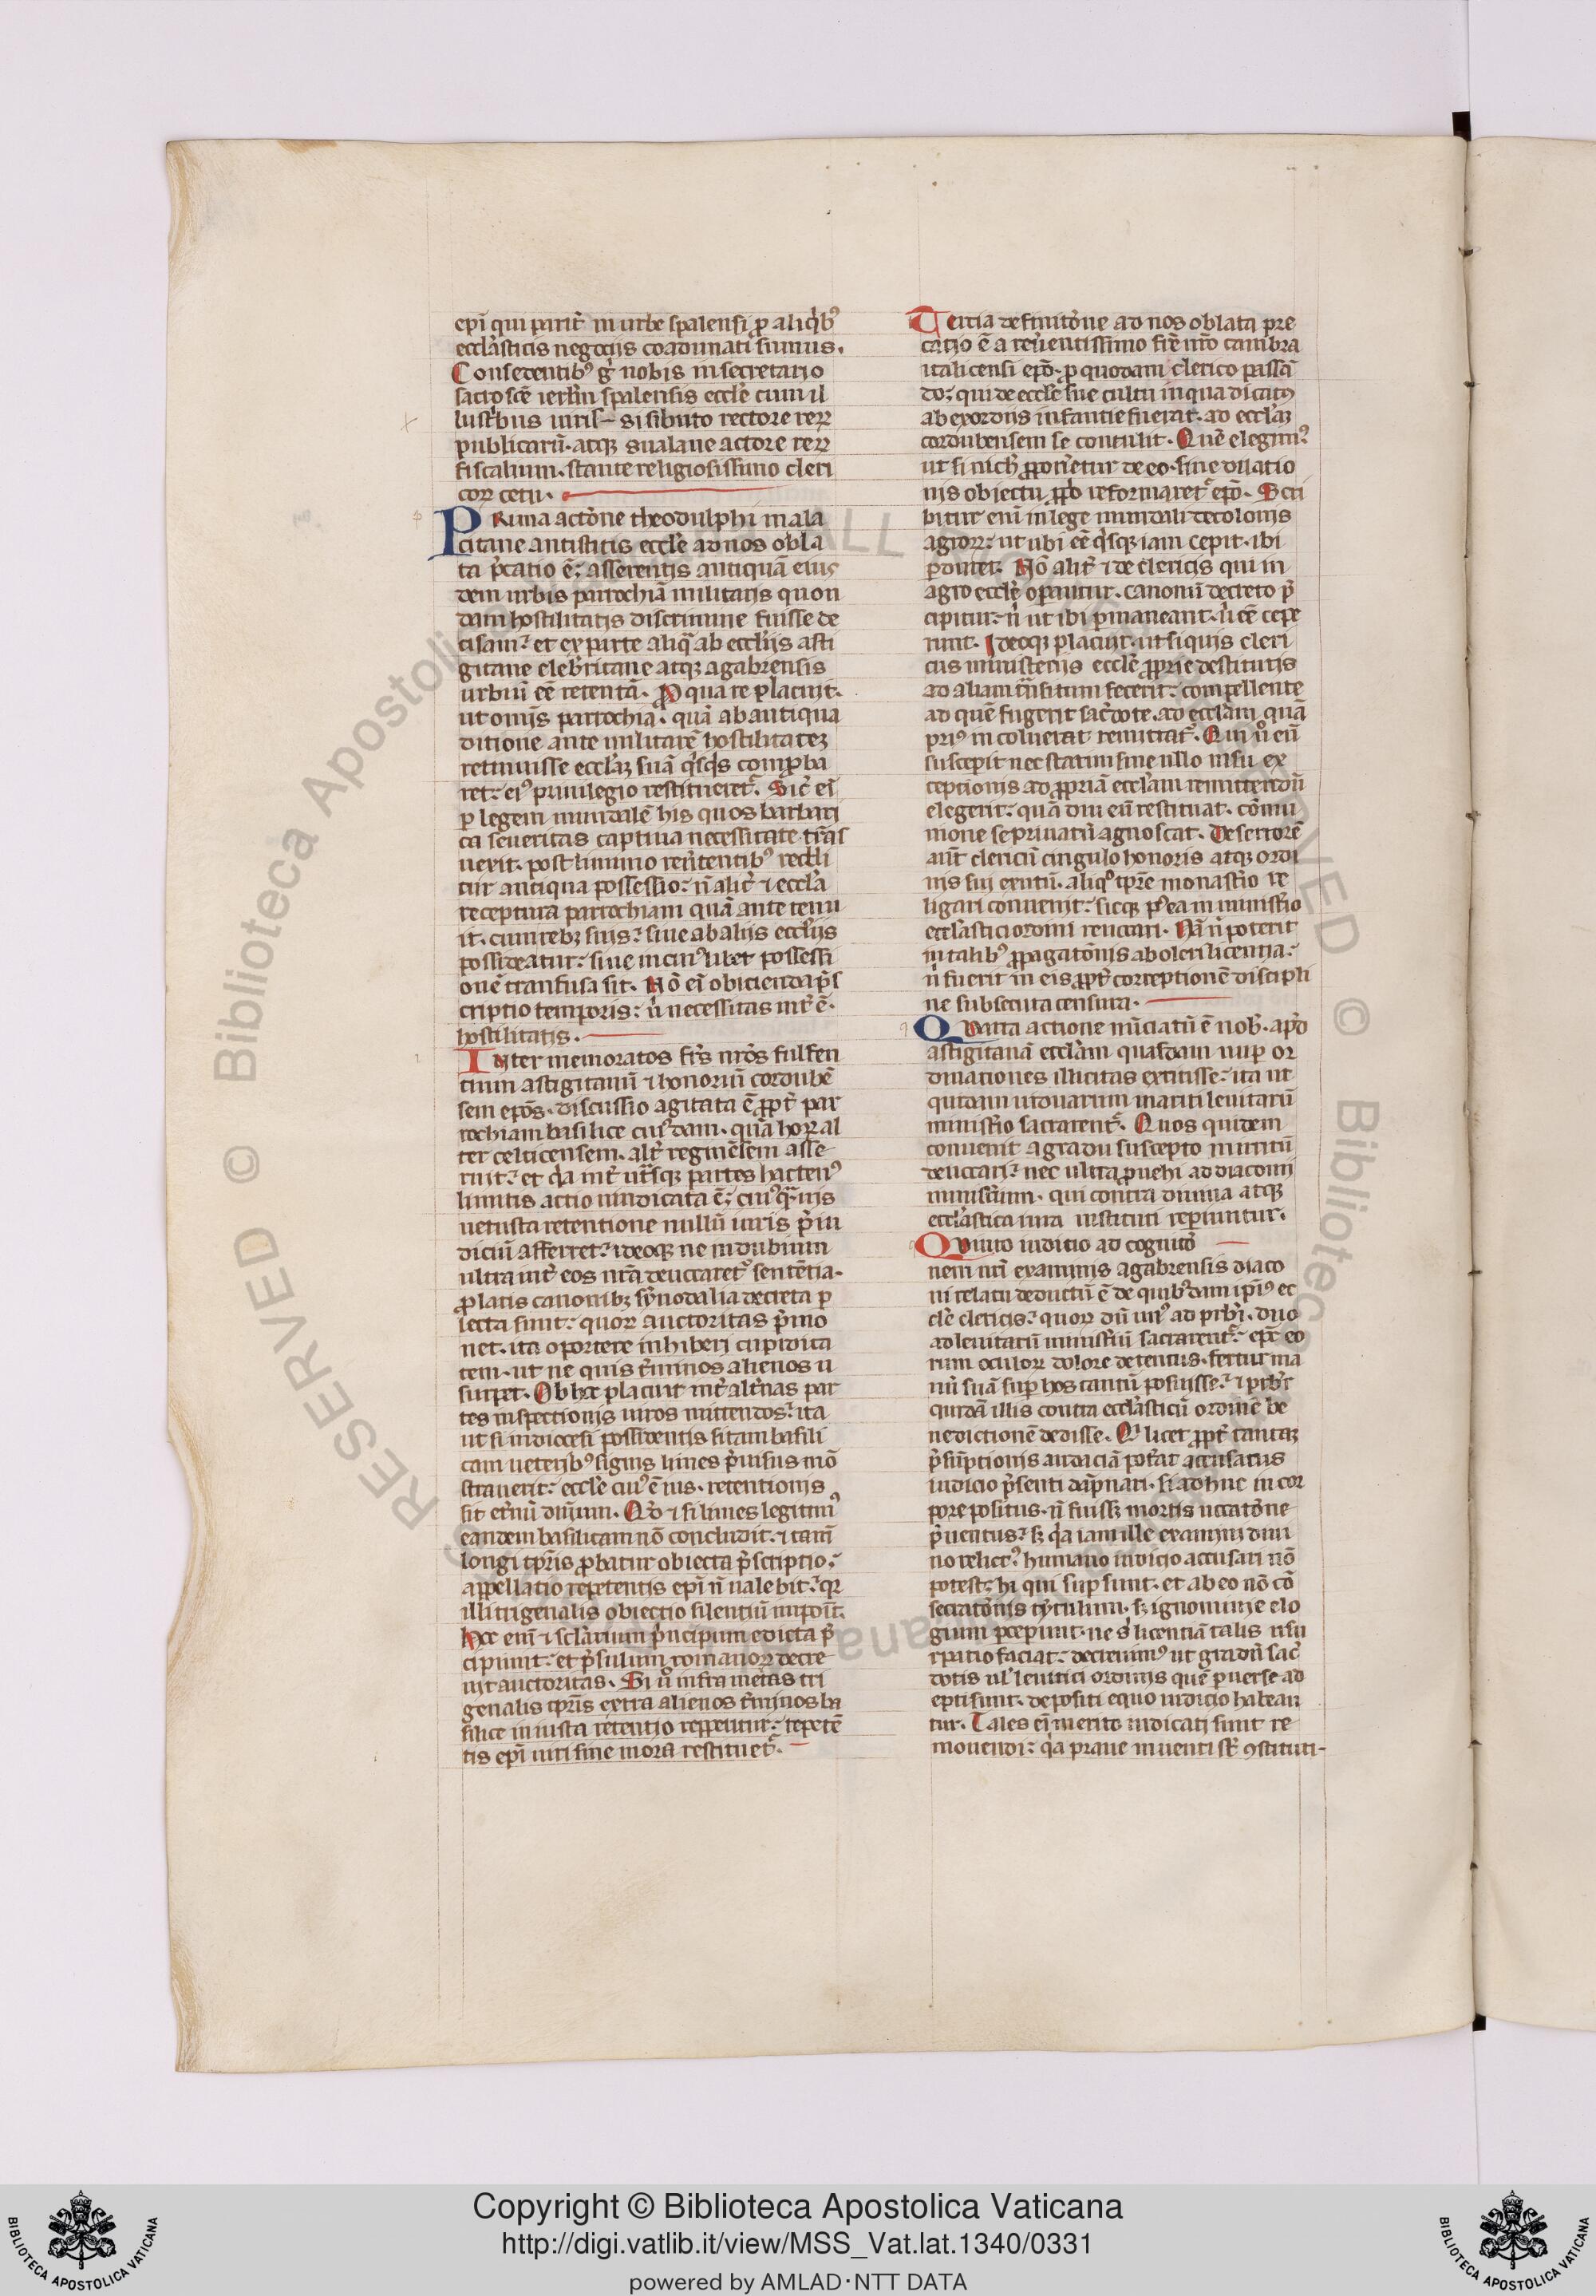 epī qui parit̄ in urbe spalensi ꝓ aliq̇bꝰ
eccl̄asticis negotijs coadunati sumus.
Consedentibꝰ g̊ nobis in secretario
sacro sc̄e ierl̄m spalensis eccl̄e cum il
lustribus uiris sisibuto rectore reꝝ
publicarū. atqꝫ sualaue actore reꝝ
fiscalium. stante religiosissimo cleri
coꝝ cetu.
PRima act̄one theodulphi mala
citane antistitis eccl̄e ad nos obla
ta p̄catio ē; asserentis antiquā eius
dem urbis parrochiā militaris quon
dam hostilitatis discrimine fuisse de
cisam. et ex parte aliq̄ ab eccl̄ijs asti
gitane eleb̄ritane atqꝫ agabrensis
urbiū eē retentā. ꝓ qua re placuit.
ut om̄is parrochia. quā ab antiqua
ditione ante militarē hostilitateꝫ
retinuisse eccl̄aꝫ suā q̇sq̇s comꝓba
ret. eiꝰ priuilegio restitueret᷑. Sic̄ eī
ꝑ legem mundalē his quos barbari
ca seueritas captiua necessitate trās
uexit. postliminio reu̅tentibꝰ reddi
tur antiqua possessio. n̄ alit̄ ⁊ eccl̄a
receptura parrochiam quā ante tenu
it. cum rebꝫ suis. siue ab alijs eccl̄ijs
possideatur. siue in cuiꝰlibet possessi
onē transfusa sit. Nō eī obicienda p̄s
criptio temporis. ū necessitas int̄ ē.
hostilitatis.
Inter memoratos fr̄s nr̄os fulfen
tium astigitanū ⁊ honoriū cordubē
sem ep̄os. discussio agitata ē ꝓpt̄ par
rochiam basilice cuiꝰdam. quā hoꝝ al
ter celticensem. alt̄ reginēsem asse
ruit. et q̇a int̄ utrasqꝫ partes hactenꝰ
limitis actio uindicata ē. cuiꝰ q̄uis
uetusta retentione nullū iuris p̄iu
diciū afferret. ideoqꝫ ne in dubium
ultra int̄ eos nr̄a deuocaretᷣ sentētia.
ꝓlatis canonibꝫ synodalia decreta ꝑ
lecta sunt. quoꝝ auctoritas p̄mo
net. ita oportere inhiberi cupidita
tem. ut ne quis t̄minos alienos u
surpet. Ob hoc placuit int̄ alt̄nas par
tes inspectionis uiros mittendos. ita
ut si in diocesi possidentis sitam basili
cam ueteribꝰ signis limes p̄uisus mō
strauerit. eccl̄e cuiꝰ ē ius. retentionis
sit et̄nū dn̄ium. Qd̄ ⁊ si limes legitimꝰ
eandem basilicam nō concludit. ⁊ tam̄
longi tp̄ris ꝓbatur obiecta p̄scriptio.
appellatio repetentis epī n̄ ualebit. qꝛ
illi trigenalis obiectio silentiū inponit.
Hoc enī ⁊ scl̄arium p̄ncipum edicta p̄
cipiunt. et p̄sulum romanoꝝ decre
uit auctoritas. Si ū infra metas tri
genalis tp̄ris extra alienos t̄minos ba
silice iniusta retentio repperitur. repetē
tis epī iuri sine mora restituet᷑.
Tertia definit̄one ad nos oblata pre
catio ē a reu̅entissimo fr̄e nr̄o cambra
italicensi ep̄o. ꝓ quodam clerico passā
do. qui de eccl̄e sue cultu in qua dicatꝰ
ab exordijs infantie fuerat. ad eccl̄aꝫ
cordubensem se contulit. Quē elegimꝰ
ut si nich̄ ꝓponeretur de eo. sine dilatio
nis obiectu ꝓpo̅ reformaret᷑ ep̄o. Scri
bitur enī in lege mundali de colonis
agroꝝ. ut ubi eē q̇sqꝫ iam cepit. ibi
ꝑduret. Nō alit̄ ⁊ de clericis qui in
agro eccl̄e operantur. canonū decreto p̄
cipitur. n̄ ut ibi ꝑmaneant. ū eē cepe
runt. Ideoqꝫ placuit. ut si quis cleri
cus ministerijs eccl̄e ꝓprie destitutis
ad aliam trāsitum fecerit. compellente
ad quē fugerit sac̄dote. ad eccl̄am quā
priꝰ incoluerat remittat᷑. Qui ū eū
susceperit nec statim sine ullo nisu ex
ceptionis ad ꝓpriā eccl̄am remittendū
elegerit. quā diu eū restituat. cōmu
nione se priuatū agnoscat. Desertorē
aūt clericū cingulo honoris atqꝫ ordi
nis sui exutū. aliqº tp̄re monast̄io re
ligari conuenit. sicqꝫ pꝰea in minist̄io
eccl̄astici ordini reuocari. Nā n̄ poterit
in talibꝰ ꝓpagat̄onis aboleri licentia.
n̄ fuerit in eis ꝓpt̄ correptionē discipli
ne subsecuta censura.
QVarta actione nūciatū ē nob̄. apd̄
astigitanā eccl̄am quasdam nuꝑ or
dinationes illicitas extitisse. ita ut
quidam uiduarum mariti leuitarū
minist̄io sacrarent᷑. Quos quidem
conuenit a gradu suscepto irritū
deuocari. nec ultra ꝓuehi ad diaconij
ministerium. qui contra diuina atqꝫ
eccl̄astica iura instituti reperiuntur.
QVinto iuditio ad cognitō
nem nr̄i examinis agabrensis diaco
ni relatu deductū ē de quibꝰdam ip̄iꝰ ec
cl̄e clericis. quoꝝ dū unꝰ ad prb̄ri. duo
ad leuitarū minist̄iū sacrarent᷑. ep̄c eo
rum oculoꝝ dolore detentus. fertur ma
nū suā suꝑ hos tantū posuisse. ⁊ prb̄r
quidā illis contra eccl̄asticū ordinē be
nedictionē dedisse. Qi licet ꝓpt̄ tantaꝫ
p̄sūptionis audaciā pot̄at accusatus
iudicio p̄senti dāpnari. si adhuc in cor
pore positus. n̄ fuisset mortis uocat̄one
p̄uentus. sꝫ q̇a iam ille examini diui
no relictꝰ. humano iudicio accusari nō
potest. hi qui suꝑ sunt. et ab eo nō cō
secrat̄onis tytulum. sꝫ ignominie elo
gium ꝑceperunt. ne s̄ licentiā talis usu
rpatio faciat. decreuimꝰ ut gradū sac̄
dotis ul̓ leuitici ordinis quē ꝑuerse ad
epti sunt. depositi equo iudicio habean
tur. Tales eī merito iudicati sunt re
mouendi. q̇a praue inuenti st̄ ꝯstituti-
Copyright © Biblioteca Apostolica Vaticana
http://digi.vatlib.it/view/MSS_Vat.lat.1340/0331
powered by AMLAD·NTT DATA